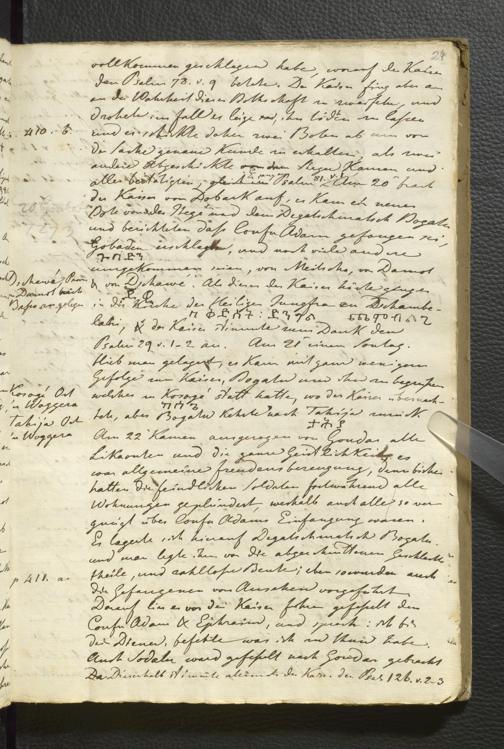 24
vollkommen geschlagen habe, worauf der Kaiser
den Psalm 78. v. 9 betete. Der Kaiser fing aber an
an der Wahrheit dieser Bothschaft zu zweifeln, und
drohete im fall es lüge sei, ihn tödten zu lassen
p. 410. b.
und er schickte daher zwei Boten ab um von
der Sache genaue Kunde zu erhalten. als zwei
andere Abgeschickte von dem Siege Kamen und
alles bestätigten, Psalm 20
der Kaiser von Dobark auf, es kam ein neuer
Bote von dem Siege und dem Degatschmatsch Bogale
und berichteten daß Confu Adam gefangen sei,
Gobaden erschlagen, und noch viele andere
umgekommen seien, von Meitscha, von Damot
Dschawé
Damot
& von Dschawé. Als dieses der Kaiser hörte ging er
in die Kirche der Heiligen Jungfrau zu Dschambe-
lalu, & der Kaiser stimmte zum Dank den
Psalm 29 v. 1-2 an. Am 21 einem Sontag.
blieb man gelagert, es kam mit ganz wenigem
Gefolge zum Kaiser, Bogale um ihn zu begrüßen
Kosogé Ort
in Woggera
welches in Kosogé statt hatte, wo der Kaiser übernach-
Tahija Ort
in Woggera
tete, aber Bogale Kehrte nach Tahija zurück
ተሓ
Am 22 Kamen ausgezogen von Gondar alle
Likaonten und die ganze Geistlichkeit, es
war allgemeine freudensbezeugung, denn bisher
hatten die feindlichen Soldaten fortwährend alle
Wohnungen geplündert, weshalb auch alles so ver-
gnügt über Confu Adams Einfangung waren.
Es lagerte sich hierauf Degatschmatsch Bogale
und man legte ihm vor die abgeschnittenen Geschlechts-
theile, und zahllose Beute; eben so wurden auch
p. 411. a.
die Gefangenen von Ansehen vorgeführt
Darauf lies er vor den Kaiser führen gefesselt den
Confu Adam & Ephraim, und sprach: ich bin
dein Diener, befehle was ich zu thun habe.
Auch Sodalu ward gefesselt nach Gondar gebracht
Da Dieserhalb stimmte abermals der Kais. den Psal. 126. v. 2-3